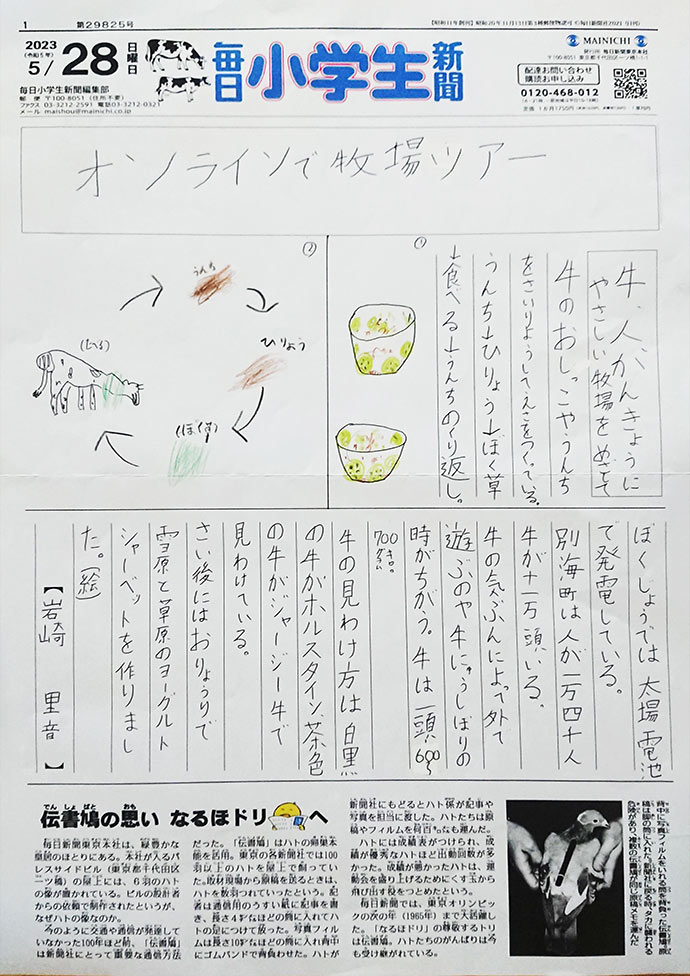 1
第29825号
【昭和11年創刊】昭和20年11月13日第3種郵便物認可 ©毎日新聞社2021 日刊
2023
(令和5年)
5/28
日曜日
毎日小学生新聞
毎日小学生新聞編集部
郵便 〒100-8051(住所不要)
ファクス 03-3212-2591 電話03-3212-0321
メール maishou@mainichi.co.jp
MAINICHI
発行所 毎日新聞東京本社
〒100-8051 東京都千代田区一ツ橋1-1-1
配達お問い合わせ
購読お申し込み
0120-468-012
オンラインで牧場ツアー
牛、人、かんきょうに
やさしい牧場をめざして
牛のおしっこやうんち
をさいりようしてえさをつくっている。
うんち→ひりょう→ぼく草
→食べる→うんちのくり返し。
①
②
うんち
ひりょう
(ぼくそう)
(たべる)
ぼくじょうでは太場電池
で発電している。
別海町は人が一万四千人
牛が十一万頭いる。
牛の気ぶんによって外で
遊ぶのや牛にゅうしぼりの
時がちがう。牛は一頭600〜
700キログラム
牛の見わけ方は白黒
の牛がホルスタイン、茶色
の牛がジャージー牛で
見わけている。
さい後にはおりょうりで
雪原と草原のヨーグルト
シャーベットを作りまし
た。(絵)
【岩崎 里音】
伝書鳩の思い なるほドリへ
毎日新聞東京本社は、緑豊かな
皇居のほとりにある。本社が入るパ
レスサイドビル(東京都千代田区
一ツ橋)の屋上には、6羽のハト
の像が置かれている。ビルの設計者
からの依頼で制作されたというが、
なぜハトの像なのか。
今のように交通や通信が発達して
いなかった100年ほど前、「伝書鳩」
は新聞社にとって重要な通信方法
だった。「伝書鳩」はハトの帰巣本
能を活用。東京の各新聞社では100
羽以上のハトを屋上で飼ってい
た。取材現場から原稿を送るときは、
ハトを数羽つれていったという。記
者は通信用のうすい紙に記事を書
き、長さ4㌢ほどの筒に入れてハ
トの足につけて放った。写真フィル
ムは長さ10㌢ほどの筒に入れ背中
にゴムバンドで背負わせた。ハトが
新聞社にもどるとハト係が記事や
写真を担当に渡した。ハトたちは原
稿やフィルムを何百㌔も運んだ。
ハトには成績表がつけられ、成
績が優秀なハトほど出動回数が多
かった。成績が悪かったハトは、運
動会を盛り上げるためにくす玉から
飛び出す役をつとめたという。
毎日新聞では、東京オリンピッ
クの次の年(1965年)まで大活躍し
た。「なるほドリ」の尊敬するトリ
は伝書鳩。ハトたちのがんばりは今
も受け継がれている。